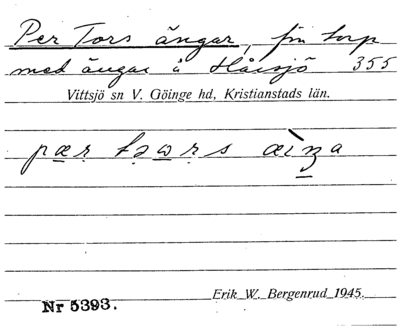 Per Tors ängar, fin torp
med ängar å Håisjö 355
Vittsjö sn V. Göinge hd, Kristianstads län.
pær
Erik W. Bergenrud 1945.
Nr 5393.